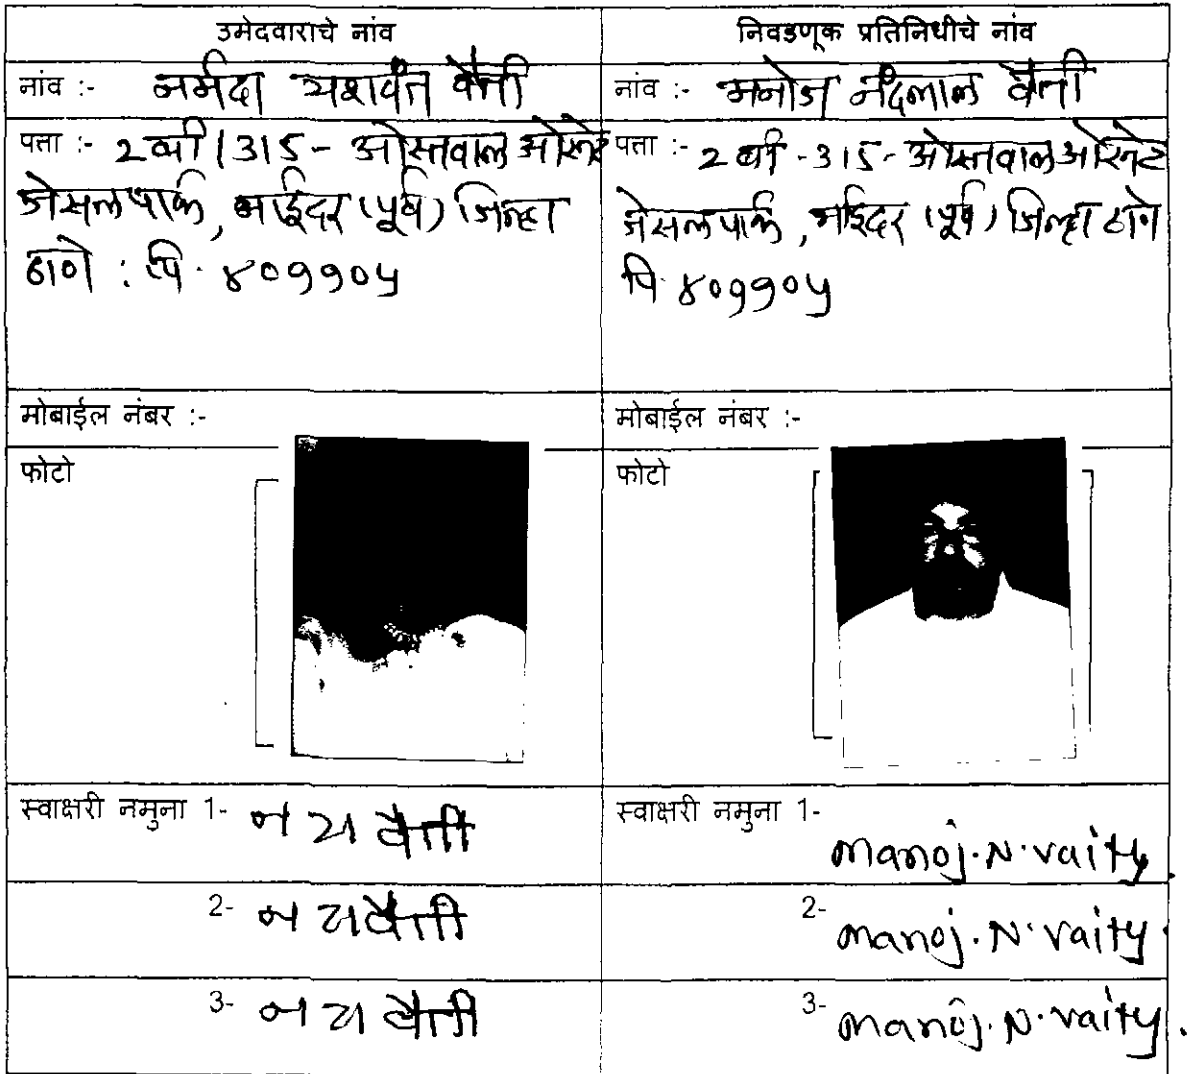 उमेदवाराचे नांव
निवडणूक प्रतिनिधीचे नांव
नांव :- नर्मदा यशवंत वैती
नांव :- मनोज नंदलाल वैती
पत्ता :- 2बी / 315 - ओस्तवाल ओरनेट
जेसलपार्क, भाईंदर (पूर्व) जिल्हा
ठाणे : पि. ४०११०५
पत्ता :- 2बी - 315 - ओस्तवाल ओरनेट
जेसलपार्क, भाईंदर (पूर्व) जिल्हा ठाणे
पि ४०११०५
मोबाईल नंबर :-
मोबाईल नंबर :-
फोटो
फोटो
स्वाक्षरी नमुना 1- न य वैती
स्वाक्षरी नमुना 1- manoj. N. vaity.
2- न य वैती
2- manoj. N. vaity.
3- न य वैती
3- manoj. N. vaity.